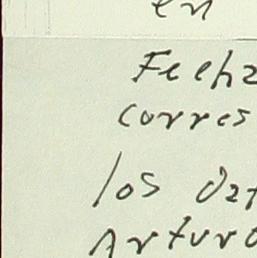 en
Fecha
corres
los dat
Arturo